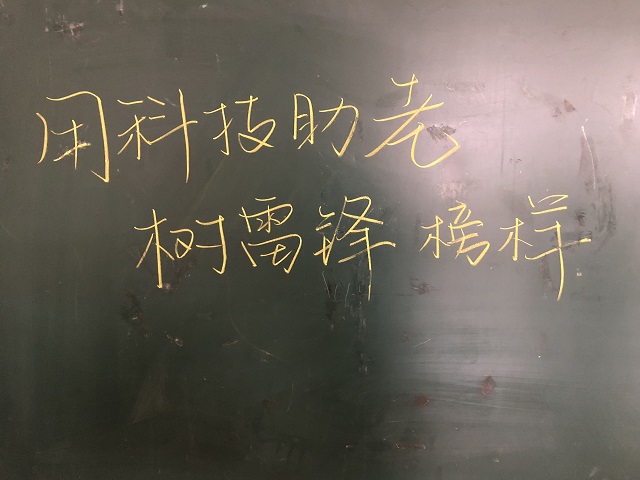 用科技助老
树雷锋榜样